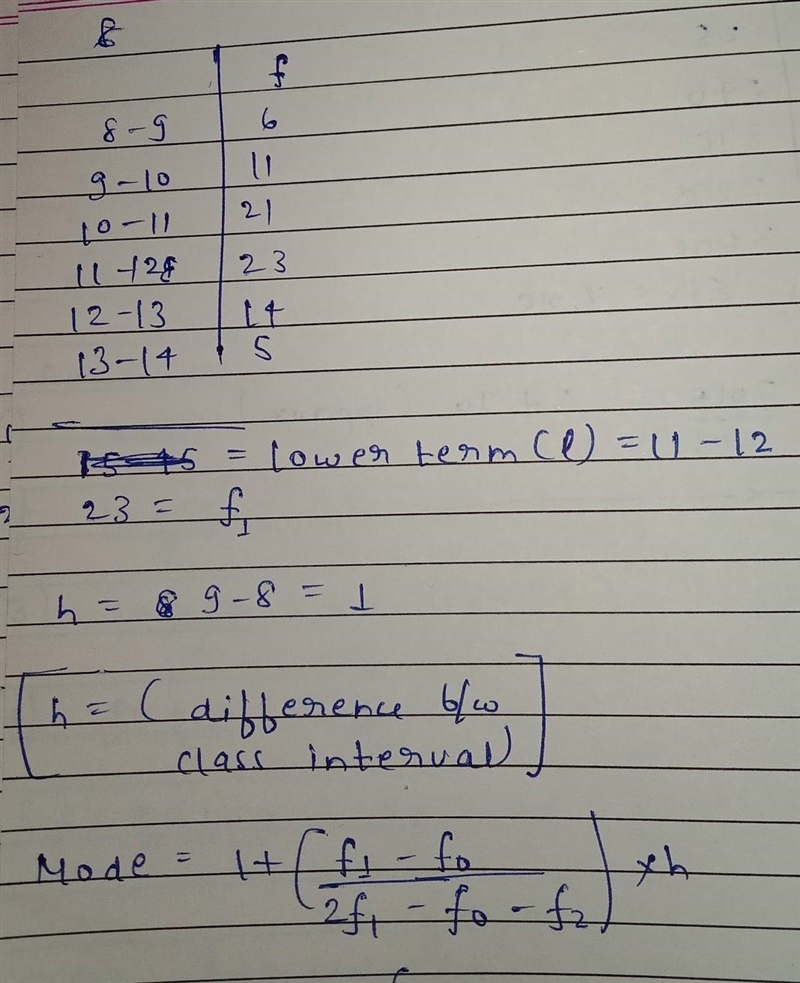 8
f
8-9 6
9-10 11
10-11 21
11-12 23
12-13 14
13-14 5
= lower term (l) = 11-12
23 = f₁
h = 9-8 = 1
[h = ( difference b/w
class interval)]
Mode = l+ (f₁ - f₀ / 2f₁ - f₀ - f₂) × h